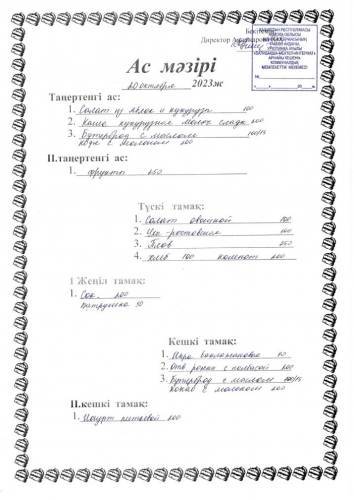 Бекітемін
Директор
Ас мәзірі
20 октября 2023ж
Таңертенгі ас:
1. Салат из яблок и кукурузы 100
2. Каша кукурузная молоч сладк 200
3. Бутерброд с маслом
кофе с молоком 200
II.таңертенгі ас:
1. фрукты 250
Түскі тамақ:
1. Салат овощной 100
2. Щи
3. Плов 250
4. хлеб 100 компот 200
1 Жеңіл тамақ:
1. Сок 200
Ватрушка 50
Кешкі тамақ:
1. Икра баклажановая
2. Отв рожки с 200
3. Бутерброд с маслом
с молоком 200
II.кешкі тамақ:
1. Йогурт питьевой 200